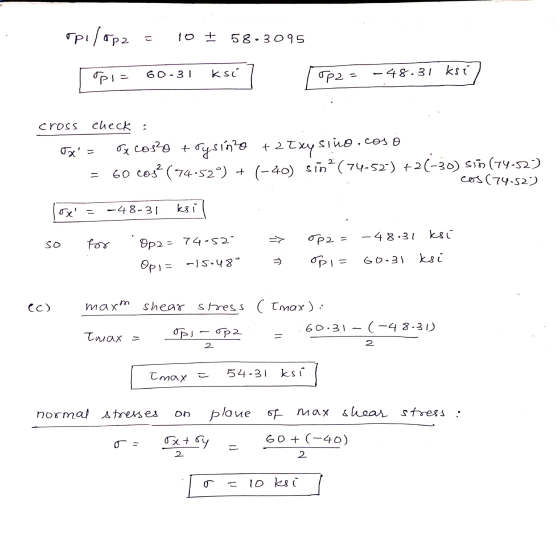 σp1/σp2 = 10 ± 58.3095
σp1 = 60.31 ksi    σp2 = -48.31 ksi
cross check :
σx' = σx cos²θ + σy sin²θ + 2τxy sinθ . cosθ
= 60 cos² (74.52°) + (-40) sin² (74.52°) + 2(-30) sin (74.52°) cos (74.52°)
σx' = -48.31 ksi
so for θp2 = 74.52° ⇒ σp2 = -48.31 ksi
θp1 = -15.48° ⇒ σp1 = 60.31 ksi
(c) maxm shear stress (τmax) :
τmax = (σp1 - σp2)/2 = (60.31 - (-48.31))/2
τmax = 54.31 ksi
normal stresses on plane of max shear stress :
σ = (σx + σy)/2 = (60 + (-40))/2
σ = 10 ksi